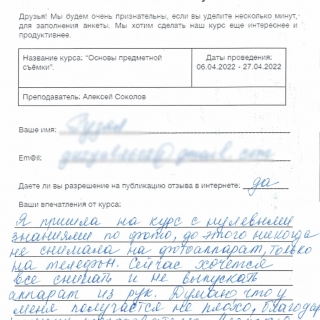 Друзья! Мы будем очень признательны, если вы уделите несколько минут,
для заполнения анкеты. Мы хотим сделать наш курс еще интереснее и
продуктивнее.
Название курса: "Основы предметной
съёмки".
Даты проведения:
06.04.2022 - 27.04.2022
Преподаватель: Алексей Соколов
Ваше имя:
Em@il:
Даете ли вы разрешение на публикацию отзыва в интернете: да
Ваши впечатления от курса:
Я пришла на курс с нулевыми
знаниями по фото, до этого никогда
не снимала на фотоаппарат, только
на телефон. Сейчас хочется
все снимать и не выпускать
аппарат из рук. Думаю что у
меня получается не плохо, благодар